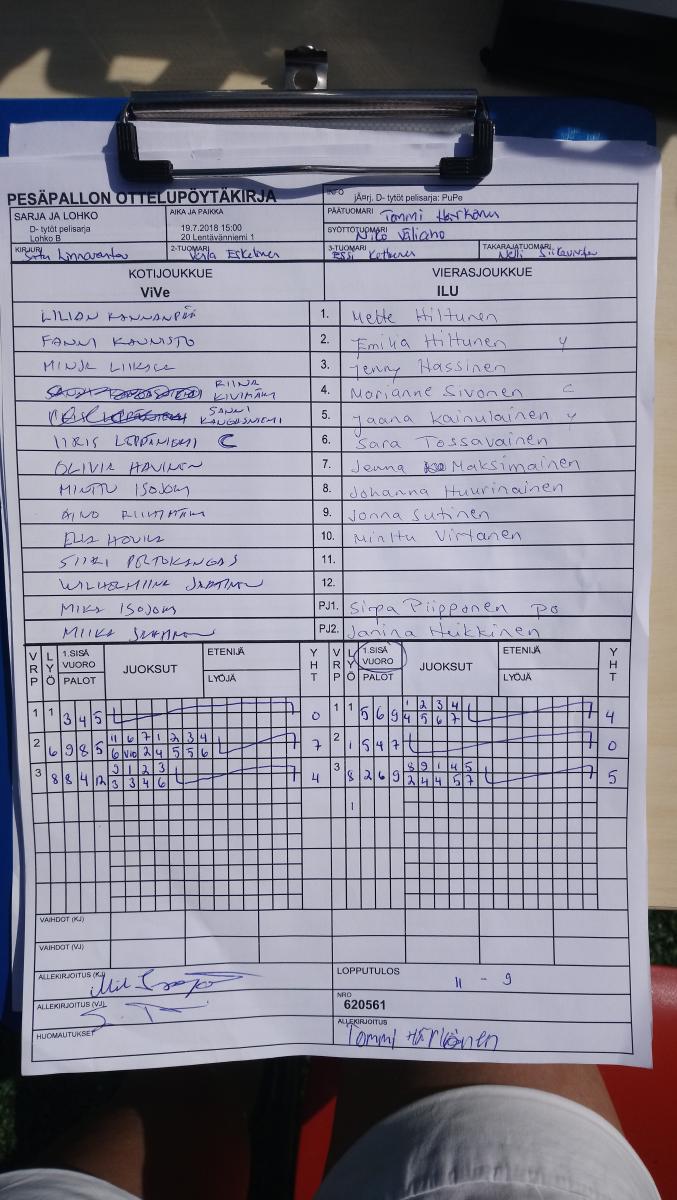 PESÄPALLON OTTELUPÖYTÄKIRJA
INFO
jÃ¤rj. D- tytöt pelisarja: PuPe
SARJA JA LOHKO
D- tytöt pelisarja
Lohko B
AIKA JA PAIKKA
19.7.2018 15:00
20 Lentävänniemi 1
PÄÄTUOMARI Tommi Härkönen
SYÖTTÖTUOMARI Niko
KIRJURI Satu
2-TUOMARI Venla Eskelinen
3-TUOMARI Essi
TAKARAJATUOMARI Nelli
KOTIJOUKKUE
ViVe
VIERASJOUKKUE
ILU
LILIAN KANNANPÄÄ 1. Mette Hiltunen
FANNI KAUNISTO 2. Emilia Hiltunen y
MINJA 3. Jenny Hassinen
RIINA KIVIMÄKI 4. Marianne Sivonen C
SANNI KANGASNIEMI 5. Jaana Kainulainen y
IIRIS LEPPÄNIEMI C 6. Sara Tossavainen
OLIVIA HAVINEN 7. Jenna Maksimainen
MINTTU ISOJOKI 8. Johanna Huurinainen
AINO RIIHIMÄKI 9. Jonna Sutinen
ELLA 10. Minttu Virtanen
SIIRI PELTOKANGAS 11.
WILHELMIINA 12.
MIKA ISOJOKI PJ1. Sirpa Piipponen po
MIIKA PJ2. Janina Heikkinen
VRP LYÖ 1.SISÄ VUORO PALOT JUOKSUT ETENIJÄ LYÖJÄ YHT VRP LYÖ 1.SISÄ VUORO PALOT JUOKSUT ETENIJÄ LYÖJÄ YHT
1 1 3 4 5 0 1 1 5 6 9 1 2 3 4 4
4 5 6 7
2 6 9 8 5 11 6 7 1 2 3 4 7 2 1 5 4 7 0
6 V10 2 4 5 5 6
3 8 8 4 12 9 1 2 3 4 3 8 2 6 9 8 9 1 4 5 5
3 3 4 6 2 4 4 5 7
1
VAIHDOT (KJ)
VAIHDOT (VJ)
ALLEKIRJOITUS (KJ)
LOPPUTULOS 11 - 9
ALLEKIRJOITUS (VJ)
NRO
620561
HUOMAUTUKSET
ALLEKIRJOITUS
Tommi Härkönen